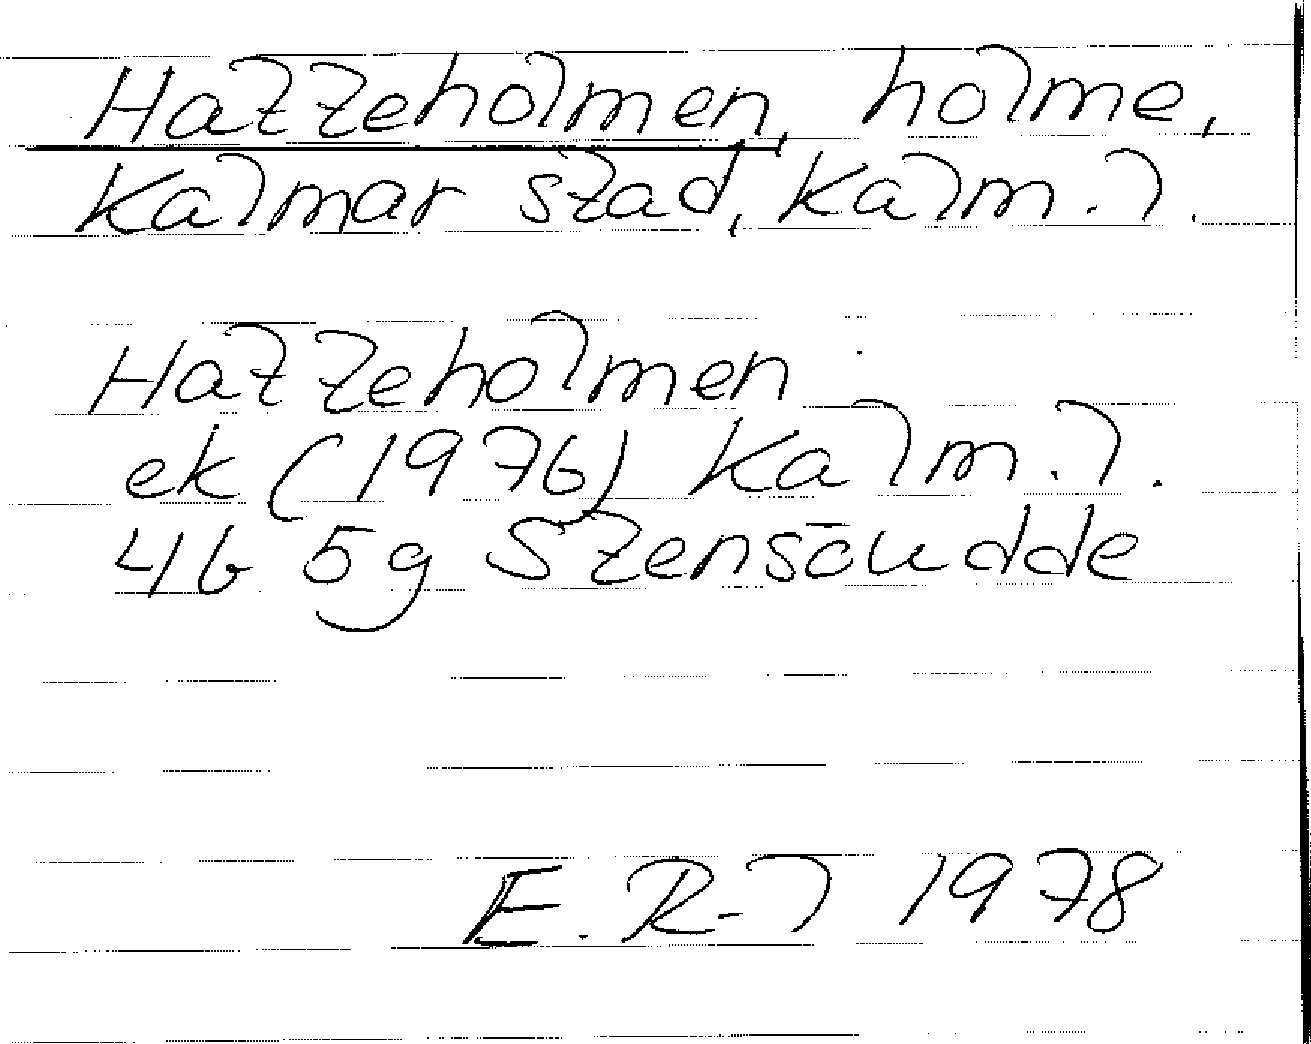 Hatteholmen, holme,
Kalmar stad, Kalm. l.
Hatteholmen
ek (1976) Kalm. l.
4G 5g Stensöudde
E. R-l 1978